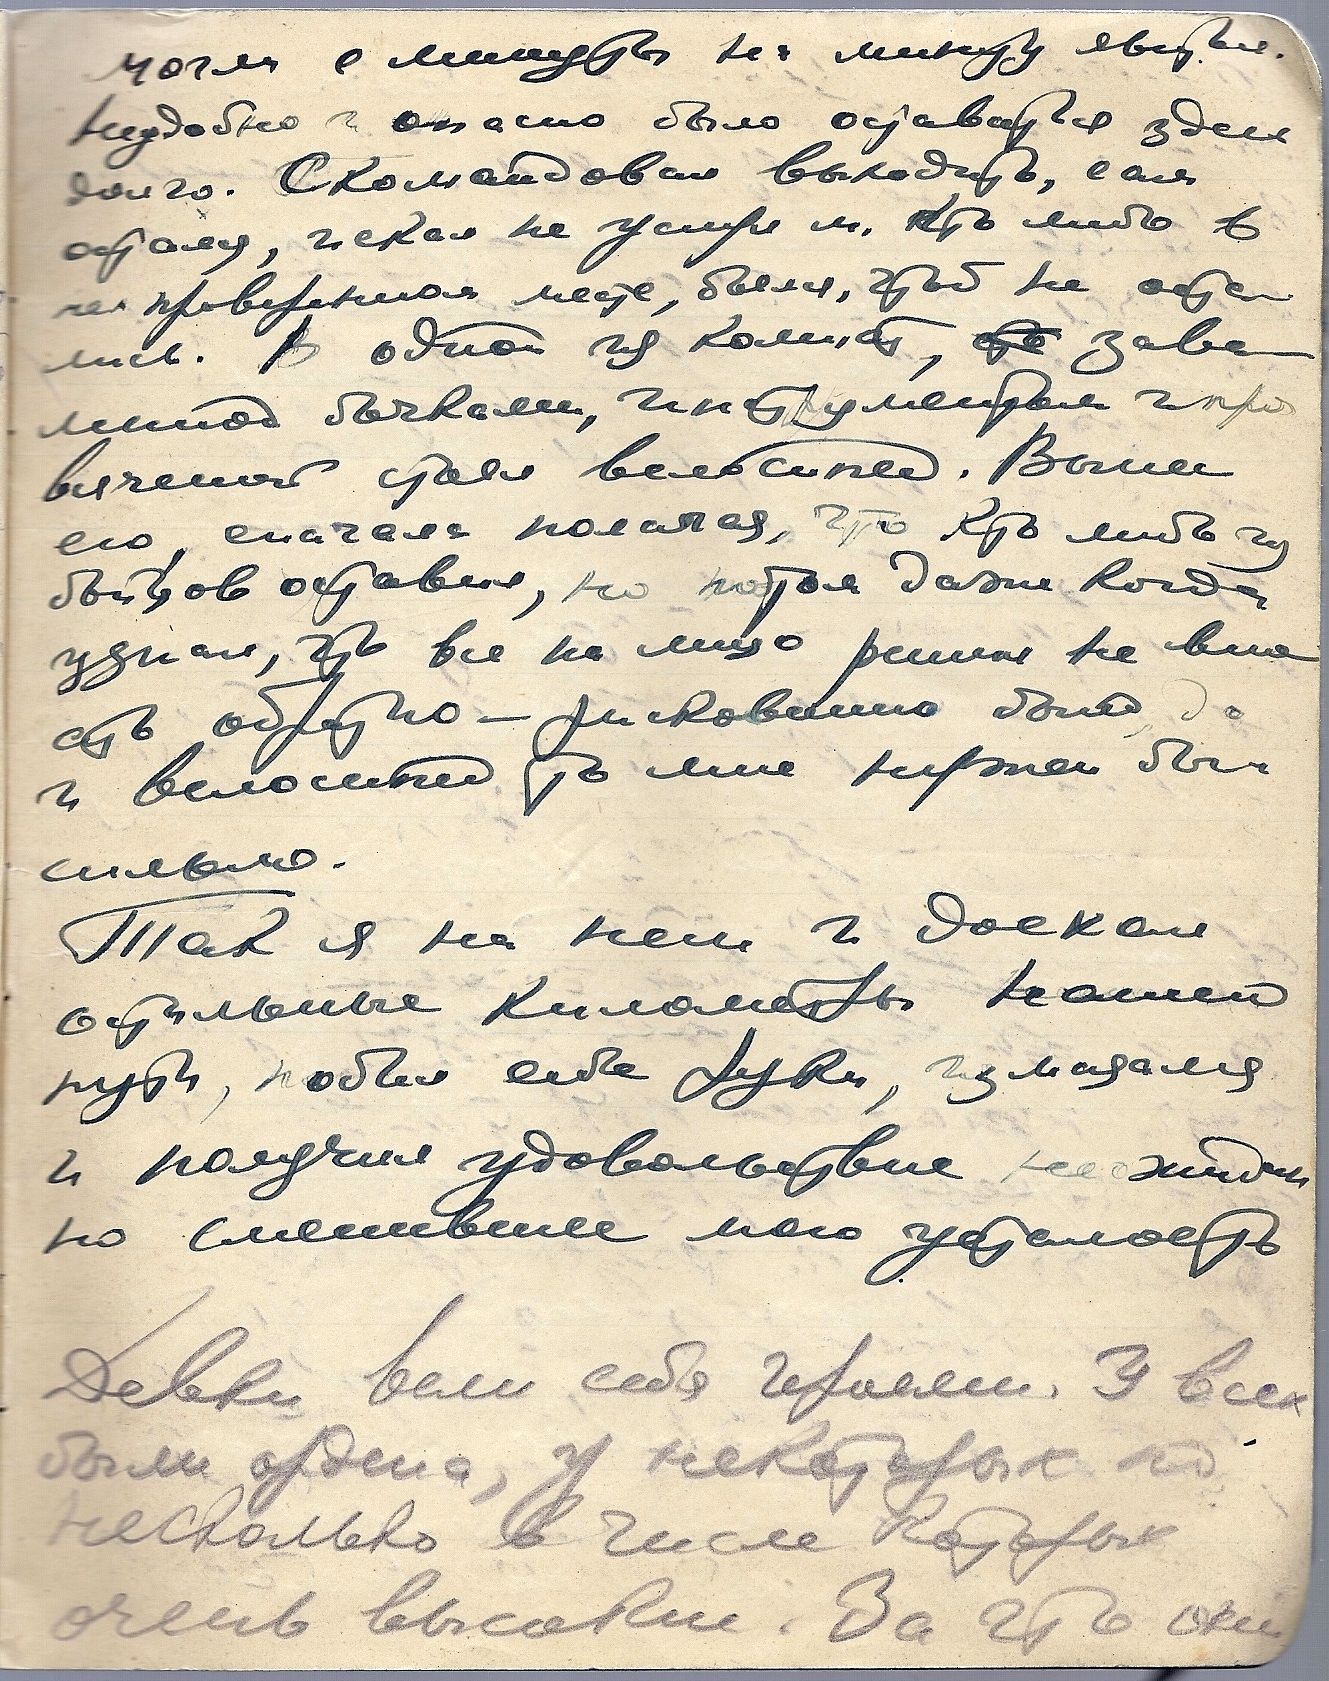 могли с минуты на минуту явиться.
Неудобно и опасно было оставаться здесь
долго. Скомандовал выходить, сам
остался, искал не уснул ли кто либо в
не проверенном месте, боялся, чтоб не оста-
лись. В одной из комнат, зава-
ленной бычками, инструментом и про
волочкой стоял велосипед. Вынес
его, сначала полагая, что кто либо из
бойцов оставил, но потом даже когда
узнал, что все на лицо решил не вно
сить обратно – рисковано было, да
и велосипед то мне нужен был
сильно.
Так я на нем и доехал
остальные километры нашего
пути, побил себе руки, измазался
и получил удовольствие неожидан
но сменившее мою усталость
Девки вели себя героями. У всех
были ордена, у некоторых по
несколько в числе которых
очень высокие. За что они